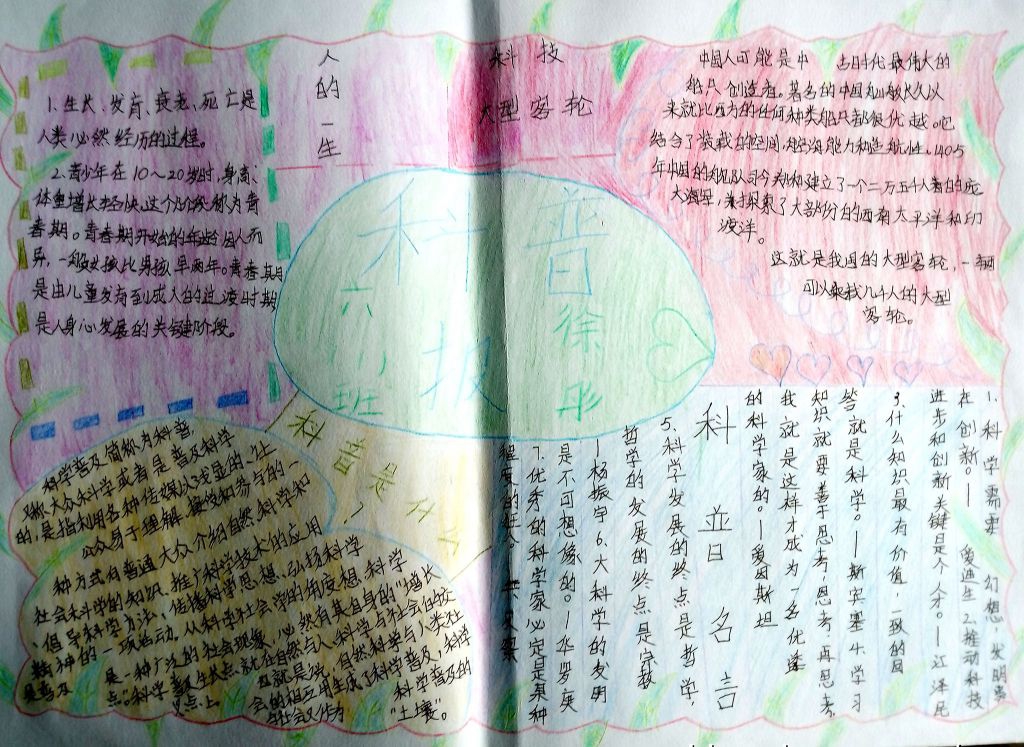 人的一生
1.生长、发育、衰老、死亡是
人类必然经历的过程。
2.青少年在10～20岁时,身高、
体重增长较快,这个阶段称为青
春期。青春期开始的年龄因人而
异,一般女孩比男孩早两年。青春期
是由儿童发育到成人的过渡时期
是人身心发展的关键阶段。
科技
大型客轮
中国人可能是中 古时代最伟大的
船只创造者。著名的中国
来就比西方的任何种类船只都很优越。它
结合了装载的空间、 能力和适航性。1405
年中国的 司令郑和建立了一个二万五千人 的庞
大海军, 探索了大部份的西南太平洋和印
度洋。
这就是我国的大型客轮,一辆
可以乘载几千人的大型
客轮。
科普
报
六 班
徐 彤
科普是什么
科学普及简称为科普
又称大众科学或者是普及科学
的,是指利用各种传媒以浅显的、让
公众易于理解、接受和参与的一
种方式向普通大众介绍自然科学和
社会科学的知识、推广科学技术的应用
倡导科学方法、传播科学思想、弘扬科学
精神的一项活动,从科学社会学的角度想,科学
是普及 是一种广泛的社会现象,必然有其自身的"增长
点。科学普及生长点就在自然与人、科学与社会的交
叉点上。 也就是说,自然科学与人类社
会的相互作用生成了科学普及,科学
与社会又作为 科学普及的
"土壤"。
科普名言
1.科学需要 幻想,发明贵
在创新。——爱迪生 2.推动科技
进步和创新关键是个人才。——江泽民
3.什么知识最有价值,一致的回
答就是科学。——斯宾塞 4.学习
知识就要善于思考,思考,再思考,
我就是这样才成为一名优 
的科学家的。——爱因斯坦
5.科学发展的终点是哲学,
哲学的发展的终点是宗教
——杨振宁 6.大科学的发明
是不可想像的。——华罗庚
7.优秀的科学家必定是某种
程度的狂人。